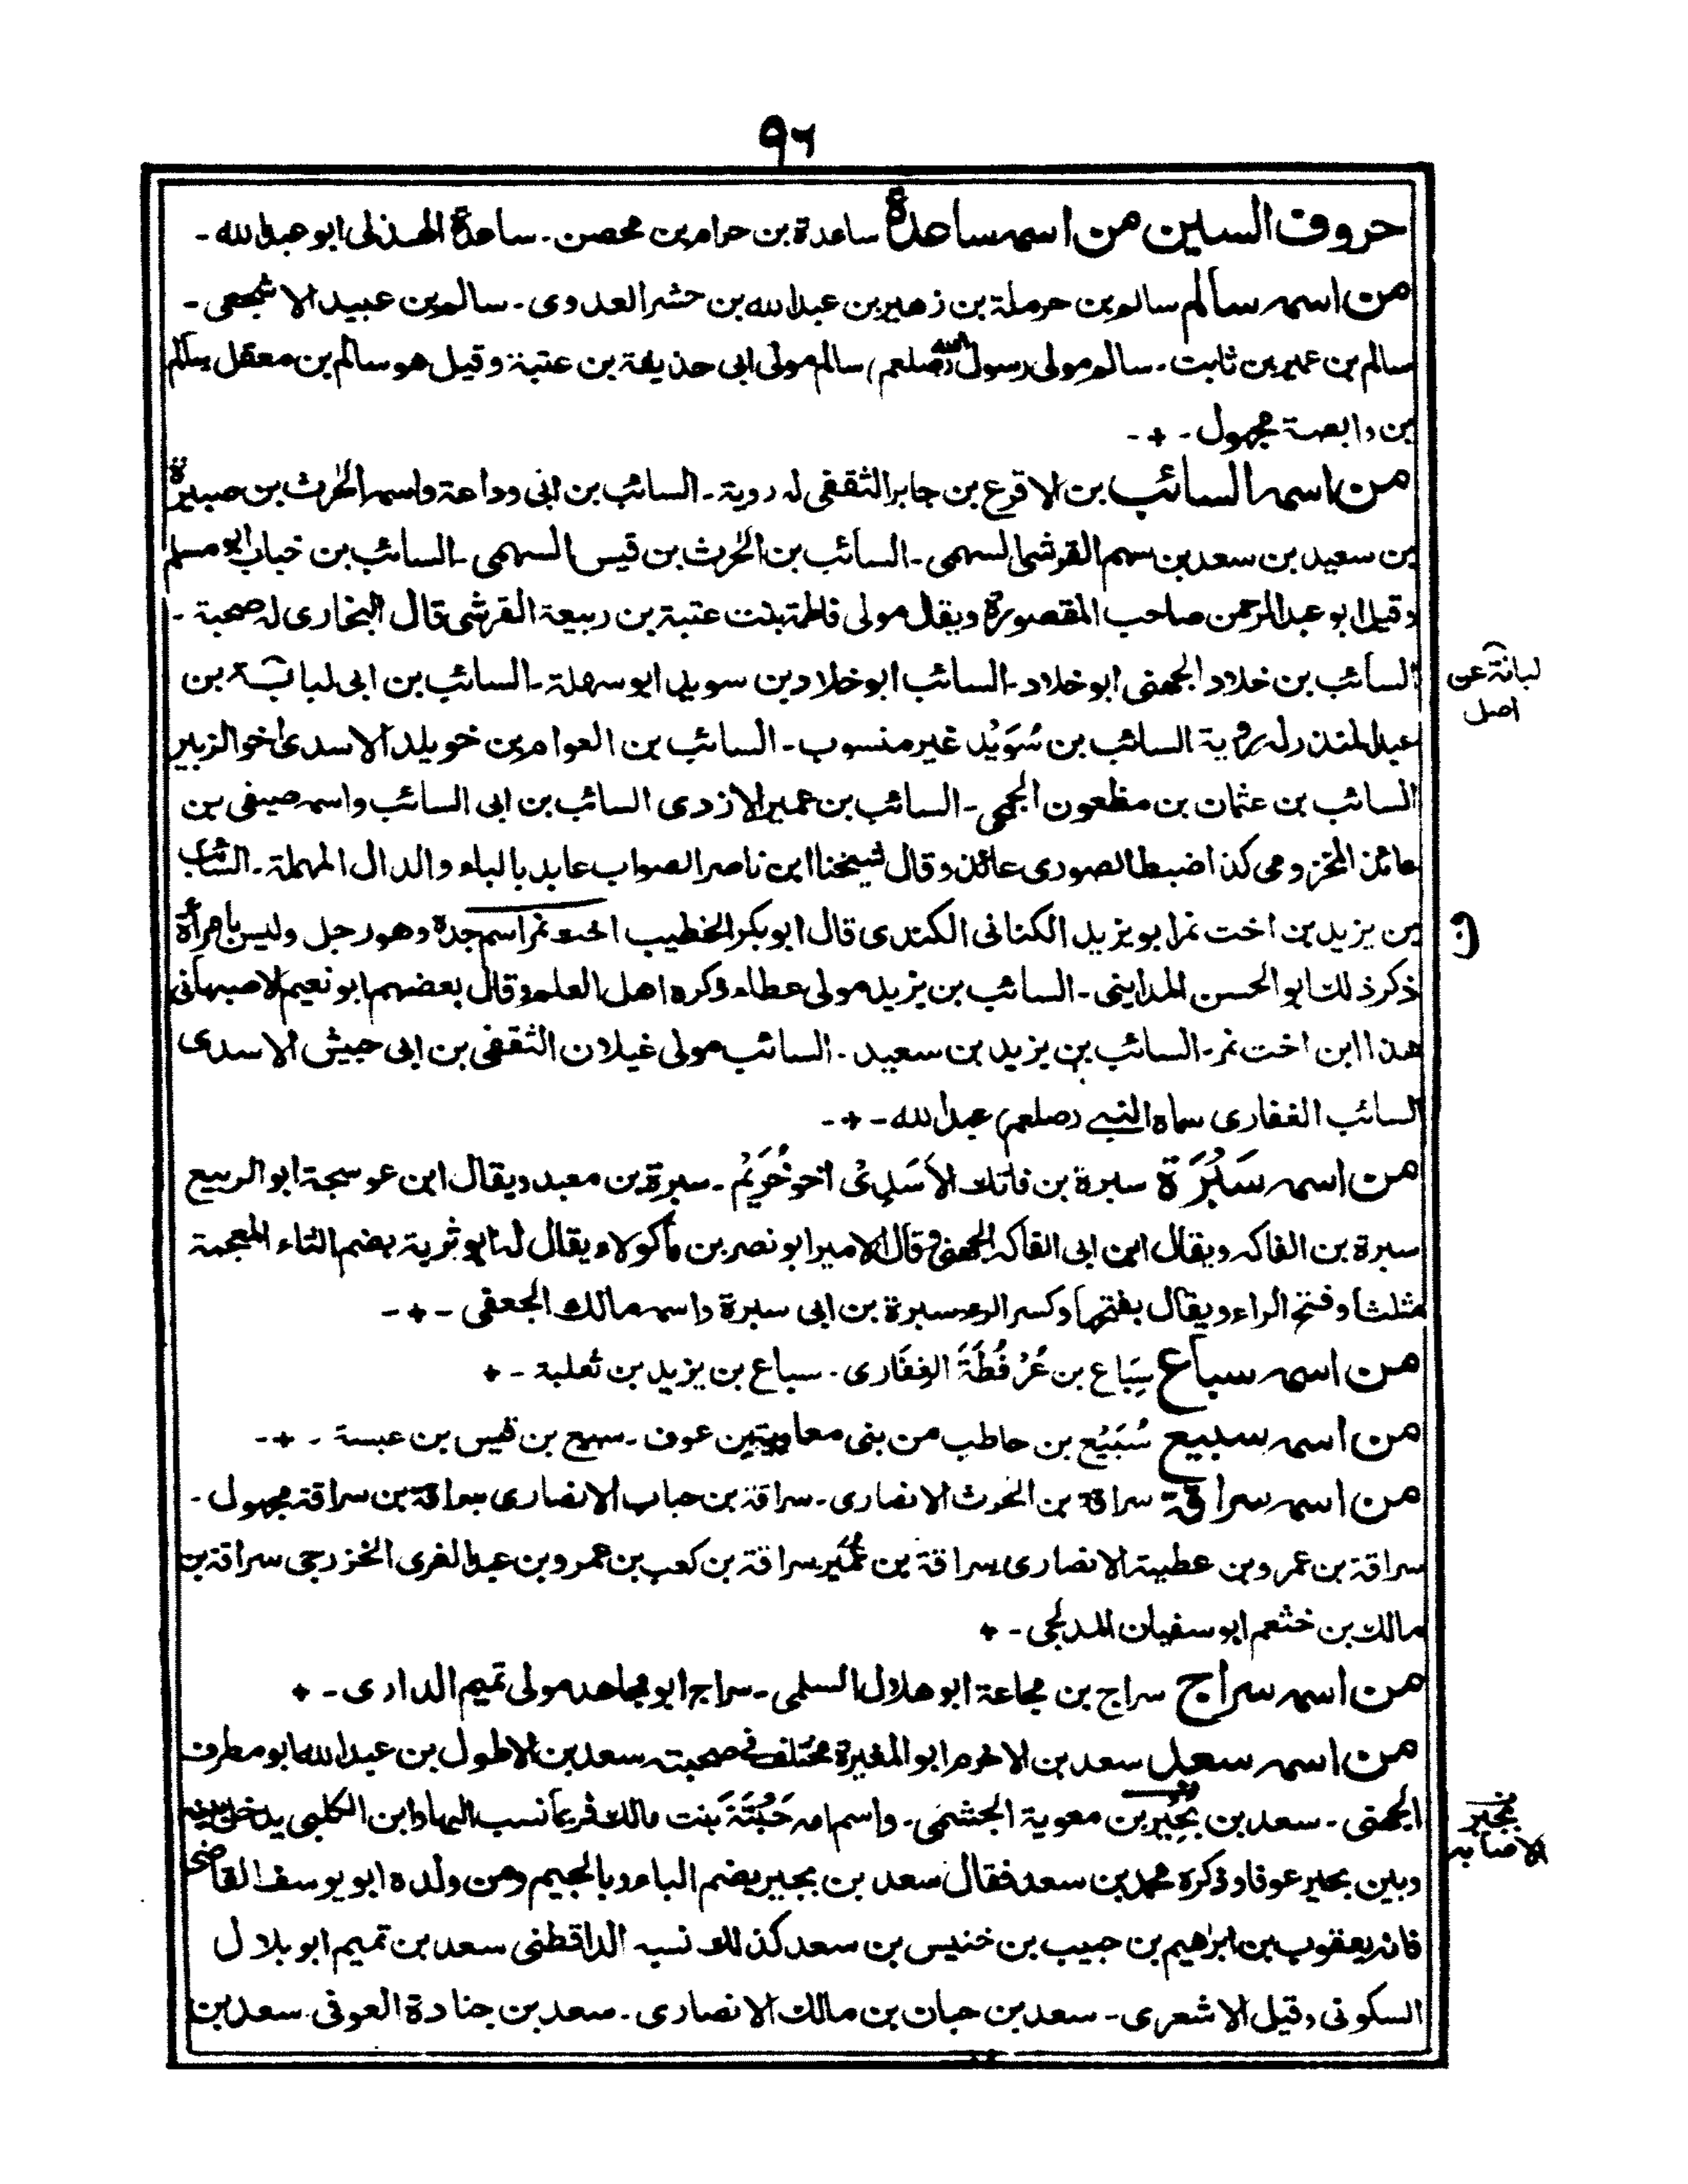 ٩٦
حروف السين من اسمه ساعدة ساعدة بن حرام بن محصن ۔ ساعدة الهذلى ابو عبدالله ۔
من اسمه سالم سالم بن حرملة بن زهير بن عبدالله بن حشر العدوى ۔ سالم بن عبيد الاشجعى ۔
سالم بن عمير بن ثابت ۔ سالم مولى رسول الله (صلعم) سالم مولى ابى حذيفة بن عتبة وقيل هو سالم بن معقل سالم
بن وابصة مجهول ۔ + ۔
من اسمه السائب بن الاقرع بن جابر الثقفى له روية ۔ السائب بن ابى وداعة واسمه الحرث بن صبيرة
بن سعيد بن سعد بن سهم القرشى السهمى ۔ السائب بن الحرث بن قيس السهمى ۔ السائب بن خباب ابو مسلم
وقيل ابو عبدالرحمن صاحب المقصورة ويقل مولى فاطمة بنت عتبة بن ربيعة القرشى قال البخارى له صحبة ۔
السائب بن خلاد الجهنى ابو خلاد ۔ السائب ابو خلاد بن سويد ابو سهلة ۔ السائب بن ابى لبابة بن
لبانة عن
اصل
عبدالمنذر له روية السائب بن سُوَيْد غير منسوب ۔ السائب بن العوام بن خويلد الاسدى اخو الزبير
السائب بن عثمان بن مظعون الجمحى ۔ السائب بن عمير الازدى السائب بن ابى السائب واسمه صيفى بن
عائذ المخزومى كذا ضبط الصورى عائذ وقال شيخنا ابن ناصر الصواب عابد بالباء والدال المهملة ۔ السائب
بن يزيد بن اخت نمر ابو يزيد الكنانى الكندى قال ابو بكر الخطيب اخت نمر اسم جدة وهو رجل وليس بامرأة
ذكر ذلك ابو الحسن المداينى ۔ السائب بن يزيد مولى عطاء ذكره اهل العلم وقال بعضهم ابو نعيم الاصبهانى
هذا ابن اخت نمر ۔ السائب بن يزيد بن سعيد ۔ السائب مولى غيلان الثقفى بن ابى حبيش الاسدى
السائب الغفارى سماه النبى (صلعم) عبدالله ۔ + ۔
من اسمه سَبُرَة سبرة بن فاتك الأسَدِىُّ اخو خُرَيْم ۔ سبرة بن معبد ويقال ابن عوسجة ابو الربيع
سبرة بن الفاكه ويقال ابن ابى الفاكه الجهنى وقال الامير ابو نصر بن ماكولا ويقال له ابو ثرية بضم الثاء المعجمة
مثلثا وفتح الراء ويقال بفتحها وكسر الراء سبرة بن ابى سبرة واسمه مالك الجعفى ۔ + ۔
من اسمه سباع سِبَاع بن عُرْفُطَةَ الغِفَارى ۔ سباع بن يزيد بن ثعلبة ۔ +
من اسمه سبيع سُبَيْع بن حاطب من بنى معاوية بن عوف ۔ سبيع بن قيس بن عبسة ۔ + ۔
من اسمه سراقة سراقة بن الحرث الانصارى ۔ سراقة بن حباب الانصارى سراقة بن سراقة مجهول ۔
سراقة بن عمرو بن عطية الانصارى سراقة بن عُمَير سراقة بن كعب بن عمرو بن عبد الغرى الخزرجى سراقة بن
مالك بن خثعم ابو سفيان المدلجى ۔ +
من اسمه سراج سراج بن مجاعة ابو هلال السلمى ۔ سراج ابو مجاهد مولى تميم الدارى ۔ +
من اسمه سعد سعد بن الاخرم ابو المغيرة مختلف فى صحبته سعد بن الاطول بن عبدالله ابو مطرف
الجهنى ۔ سعد بن بُجَيْر بن معوية الجشمى ۔ واسم امه حَبْتَةَ بنت مالك فربما نسب اليها وابن الكلبى يدخل بينه
بجير
الاصابه
وبين بجير عوفا وذكره محمد بن سعد فقال سعد بن بجير بضم الباء وبالجيم ومن ولده ابو يوسف القاضى
فانه يعقوب بن ابرهيم بن حبيب بن خنيس بن سعد كذلك نسبه الداقطنى سعد بن تميم ابو بلال
السكونى وقيل الاشعرى ۔ سعد بن حبان بن مالك الانصارى ۔ سعد بن جنادة العوفى ۔ سعد بن